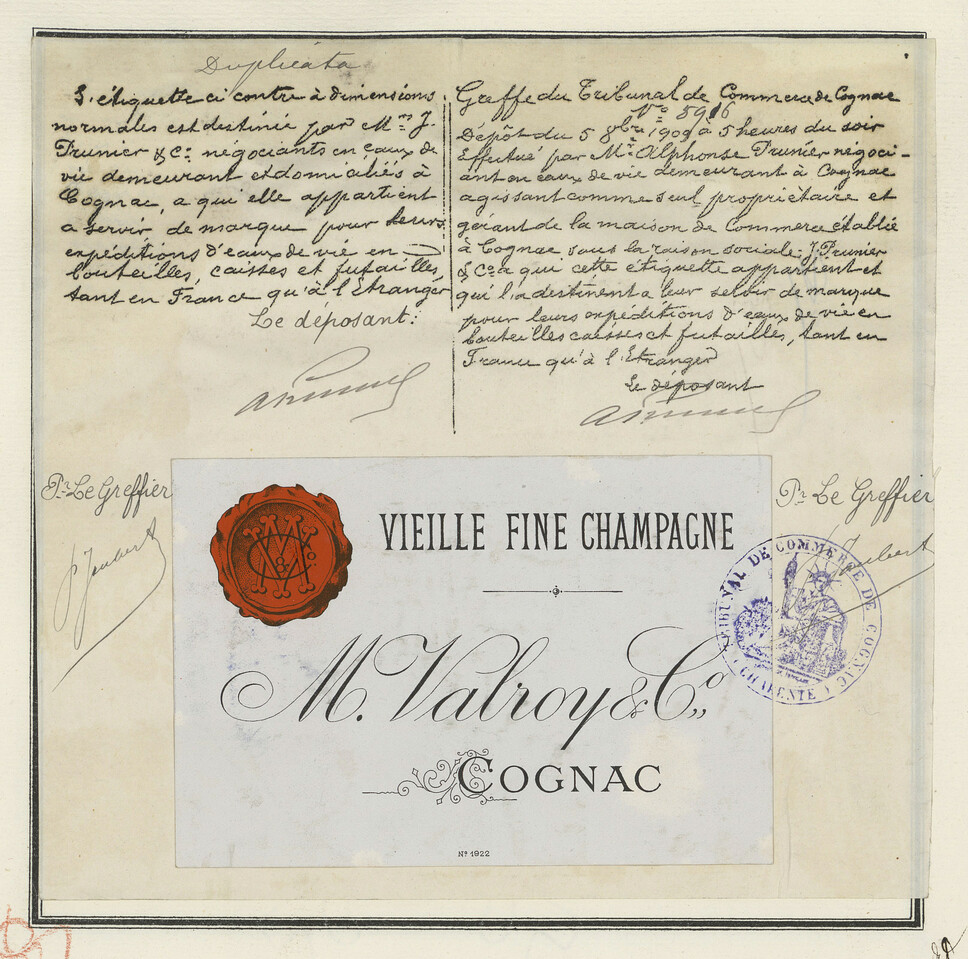 Duplicata
L'étiquette ci contre à dimensions
normales est destinée par Mrs J.
Prunier & Co. négociants en eaux de
vie demeurant et domiciliés à
Cognac, a qui elle appartient
a servir de marque pour leurs
expéditions d'eaux de vie en
bouteilles, caisses et futailles,
tant en France qu'à l'Etranger
Le déposant:
Greffe du Tribunal de Commerce de Cognac
No 5916
Dépôt du 5 8bre 1909 à 5 heures du soir
Effectué par Mr Alphonse Prunier négoci-
ant en eaux de vie demeurant à Cognac
agissant comme seul propriétaire et
gérant de la maison de Commerce établie
à Cognac sous la raison sociale J. Prunier
& Co a qui cette étiquette appartient et
qui l'a destinent a leur servir de marque
pour leurs expéditions d'eaux de vie en
bouteilles caisses et futailles, tant en
France qu'à l'Etranger
Le déposant
Pr Le Greffier
Pr Le Greffier
VIEILLE FINE CHAMPAGNE
M. Valroy & Co,,
COGNAC
No 1922
TRIBUNAL DE COMMERCE DE COGNAC
(CHARENTE)